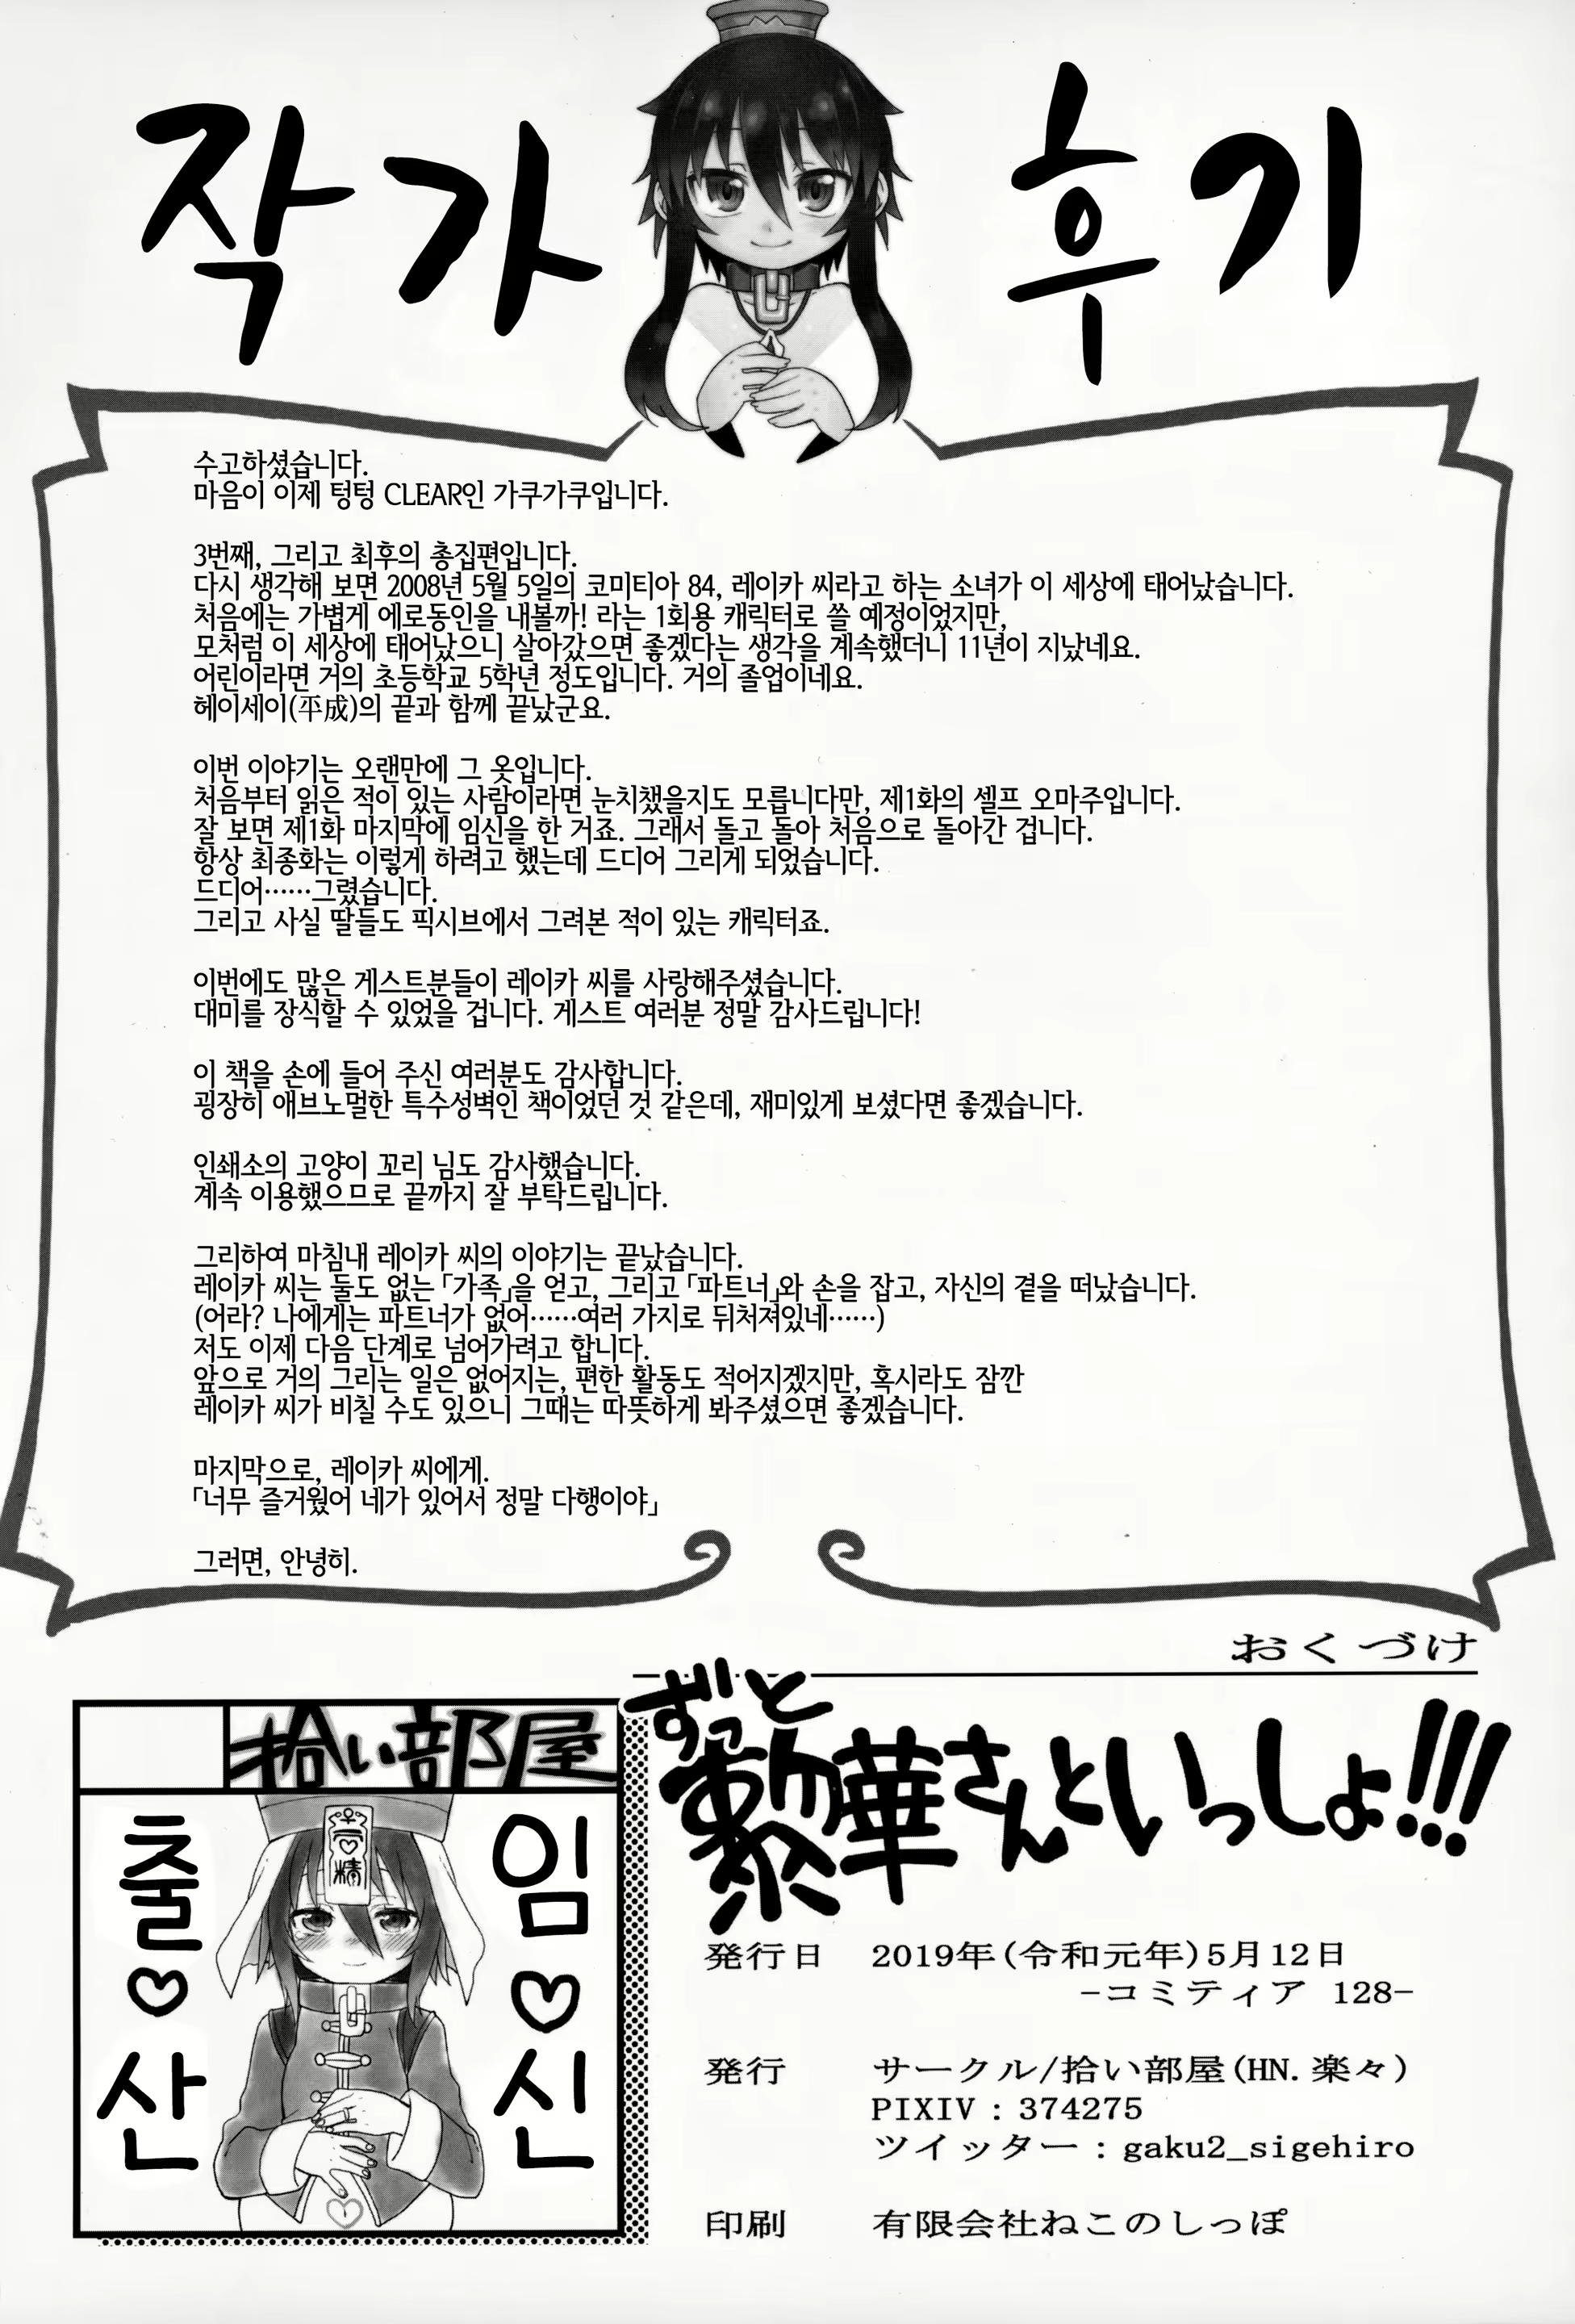 작가 후기
수고하셨습니다.
마음이 이제 텅텅 CLEAR인 가쿠가쿠입니다.
3번째, 그리고 최후의 총집편입니다.
다시 생각해 보면 2008년 5월 5일의 코미티아 84, 레이카 씨라고 하는 소녀가 이 세상에 태어났습니다.
처음에는 가볍게 에로동인을 내볼까! 라는 1회용 캐릭터로 쓸 예정이었지만,
모처럼 이 세상에 태어났으니 살아갔으면 좋겠다는 생각을 계속했더니 11년이 지났네요.
어린이라면 거의 초등학교 5학년 정도입니다. 거의 졸업이네요.
헤이세이(平成)의 끝과 함께 끝났군요.
이번 이야기는 오랜만에 그 옷입니다.
처음부터 읽은 적이 있는 사람이라면 눈치챘을지도 모릅니다만, 제1화의 셀프 오마주입니다.
잘 보면 제1화 마지막에 임신을 한 거죠. 그래서 돌고 돌아 처음으로 돌아간 겁니다.
항상 최종화는 이렇게 하려고 했는데 드디어 그리게 되었습니다.
드디어……그렸습니다.
그리고 사실 딸들도 픽시브에서 그려본 적이 있는 캐릭터죠.
이번에도 많은 게스트분들이 레이카 씨를 사랑해주셨습니다.
대미를 장식할 수 있었을 겁니다. 게스트 여러분 정말 감사드립니다!
이 책을 손에 들어 주신 여러분도 감사합니다.
굉장히 애브노멀한 특수성벽인 책이었던 것 같은데, 재미있게 보셨다면 좋겠습니다.
인쇄소의 고양이 꼬리 님도 감사했습니다.
계속 이용했으므로 끝까지 잘 부탁드립니다.
그리하여 마침내 레이카 씨의 이야기는 끝났습니다.
레이카 씨는 둘도 없는 「가족」을 얻고, 그리고 「파트너」와 손을 잡고, 자신의 곁을 떠났습니다.
(어라? 나에게는 파트너가 없어……여러 가지로 뒤처져있네……)
저도 이제 다음 단계로 넘어가려고 합니다.
앞으로 거의 그리는 일은 없어지는, 편한 활동도 적어지겠지만, 혹시라도 잠깐
레이카 씨가 비칠 수도 있으니 그때는 따뜻하게 봐주셨으면 좋겠습니다.
마지막으로, 레이카 씨에게.
「너무 즐거웠어 네가 있어서 정말 다행이야」
그러면, 안녕히.
おくづけ
ずっと
黎華さんといっしょ!!!
拾い部屋
임♡신
출♡산
発行日 2019年(令和元年)5月12日
−コミティア 128−
発行 サークル/拾い部屋(HN.楽々)
PIXIV : 374275
ツイッター : gaku2_sigehiro
印刷 有限会社ねこのしっぽ